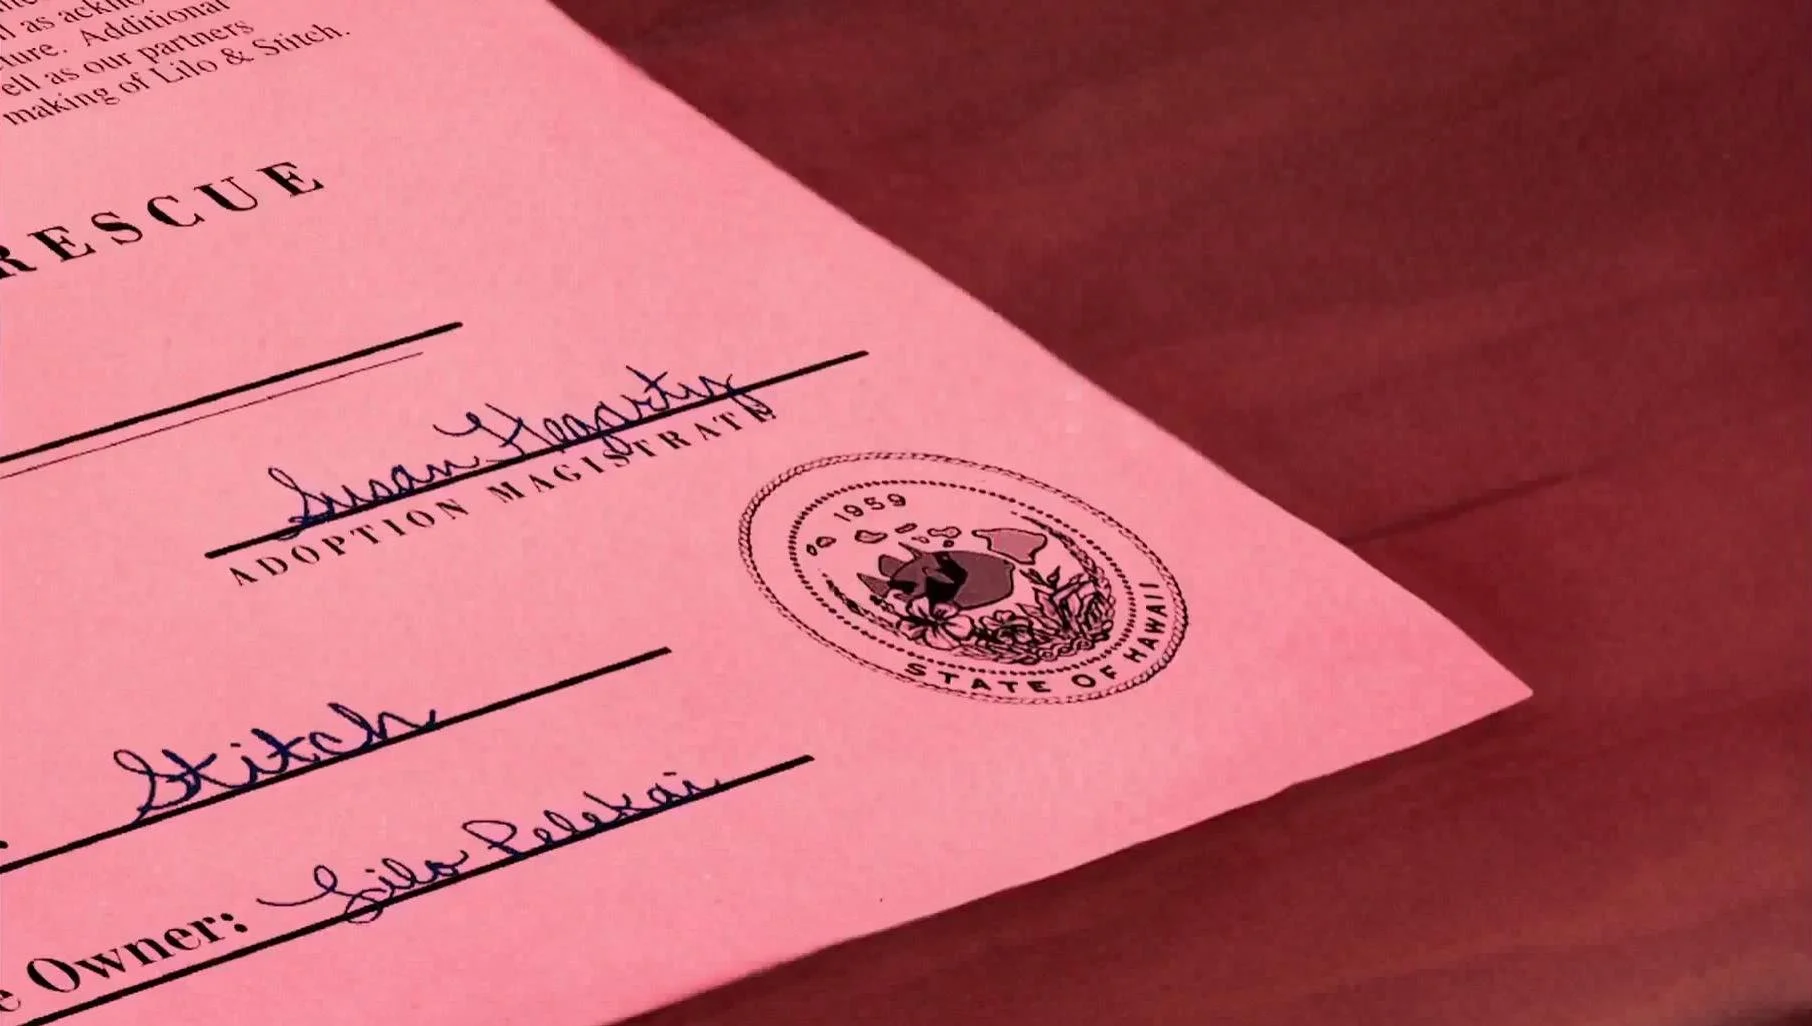 as ackno
ture. Additional
ell as our partners
making of Lilo & Stitch.
RESCUE
Susan Hegarty
ADOPTION MAGISTRATE
1959
STATE OF HAWAII
Stitch
Owner: Lilo Pelekai